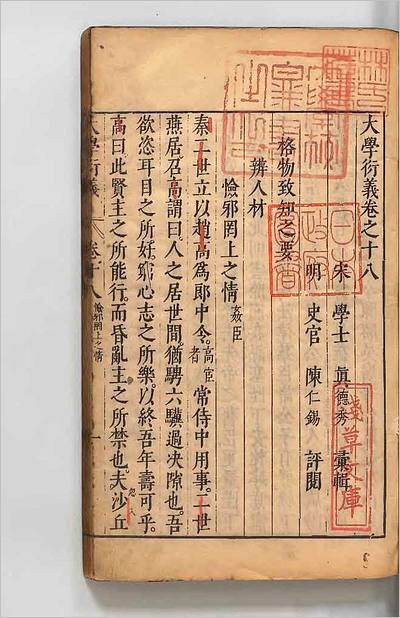 大學衍義卷之十八
宋 學士 眞德秀 彙輯
明 史官 陳仁錫 評閱
格物致知之要
辨人材
憸邪罔上之情 姦臣
秦二世立以趙高爲郎中令高宦者常侍中用事二世
燕居召高謂曰人之居世間猶騁六驥過決隙也吾
欲恣耳目之所好窮心志之所樂以終吾年壽可乎
高曰此賢主之所能行而昏亂主之所禁也夫沙丘
大學衍義 卷十八 憸邪罔上之情 一
淺草文庫